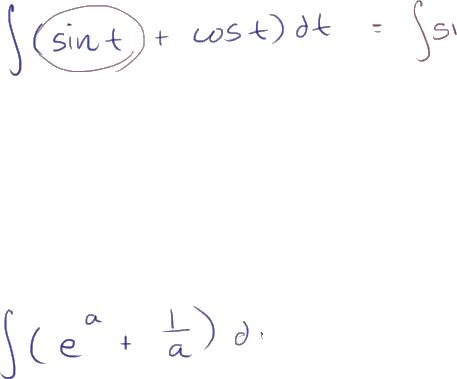 ∫(sin t + cos t) dt = ∫si
∫(e^a + 1/a) d